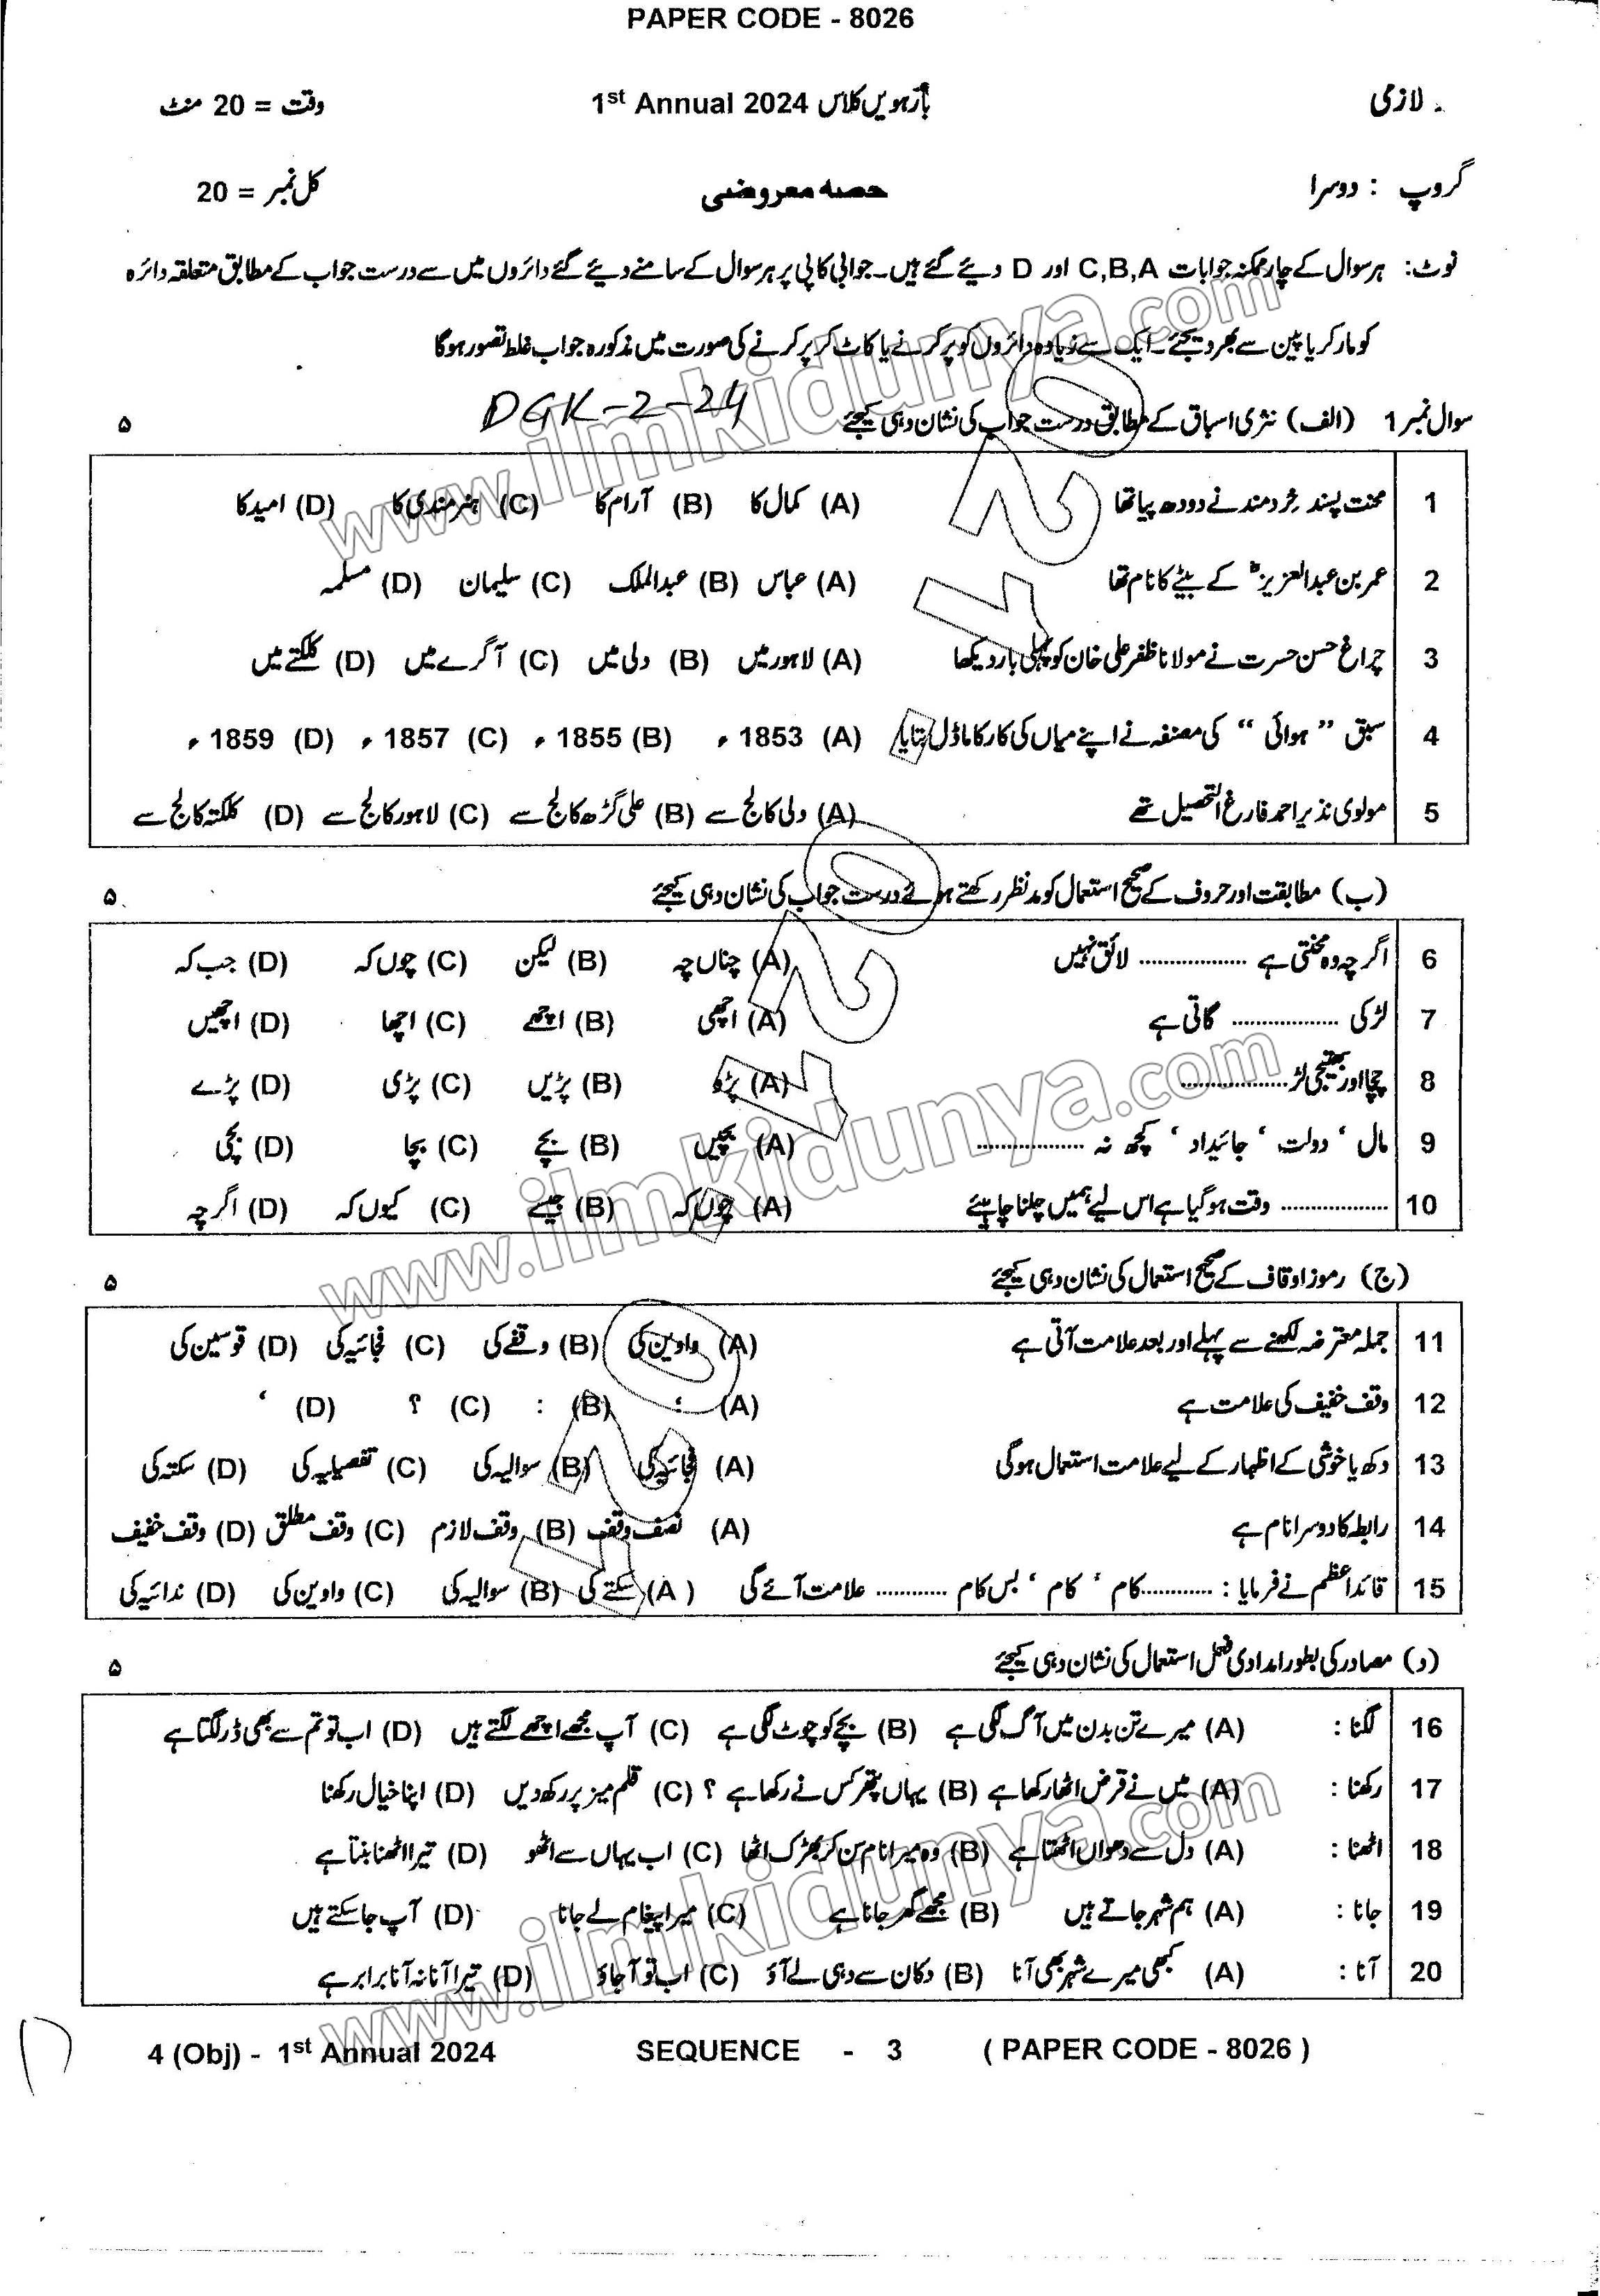 PAPER CODE - 8026
لازمی بارہویں کلاس 1st Annual 2024 وقت = 20 منٹ
گروپ : دوسرا حصہ معروضی کل نمبر = 20
نوٹ: ہر سوال کے چار ممکنہ جوابات C,B,A اور D دیئے گئے ہیں۔ جوابی کاپی پر ہر سوال کے سامنے دیئے گئے دائروں میں سے درست جواب کے مطابق متعلقہ دائرہ
کو مارکر یا پین سے بھر دیجئے۔ ایک سے زیادہ دائروں کو پر کرنے یا کاٹ کر پر کرنے کی صورت میں مذکورہ جواب غلط تصور ہوگا
DGK-2-24
سوال نمبر 1 (الف) نثری اسباق کے مطابق درست جواب کی نشان دہی کیجئے ۵
1 محنت پسند خردمند نے دودھ پیا تھا (A) کمال کا (B) آرام کا (C) ہنرمندی کا (D) امید کا
2 عمر بن عبدالعزیزؒ کے بیٹے کا نام تھا (A) عباس (B) عبدالملک (C) سلیمان (D) مسلمہ
3 چراغ حسن حسرت نے مولانا ظفر علی خان کو پہلی بار دیکھا (A) لاہور میں (B) دلی میں (C) آگرے میں (D) کلکتے میں
4 سبق ” ہوائی “ کی مصنفہ نے اپنے میاں کی کار کا ماڈل بتایا (A) 1853ء (B) 1855ء (C) 1857ء (D) 1859ء
5 مولوی نذیر احمد فارغ التحصیل تھے (A) دلی کالج سے (B) علی گڑھ کالج سے (C) لاہور کالج سے (D) کلکتہ کالج سے
(ب) مطابقت اور حروف کے صحیح استعمال کو مدنظر رکھتے ہوئے درست جواب کی نشان دہی کیجئے ۵
6 اگرچہ وہ محنتی ہے .................. لائق نہیں (A) چناں چہ (B) لیکن (C) چوں کہ (D) جب کہ
7 لڑکی .................. گاتی ہے (A) اچھی (B) اچھے (C) اچھا (D) اچھیں
8 چچا اور بھتیجی لڑ.................. (A) پڑو (B) پڑیں (C) پڑی (D) پڑے
9 مال ‘ دولت ‘ جائیداد ‘ کچھ نہ .................. (A) بچیں (B) بچے (C) بچا (D) بچی
10 .................. وقت ہو گیا ہے اس لیے ہمیں چلنا چاہیئے (A) چوں کہ (B) جیسے (C) کیوں کہ (D) اگرچہ
(ج) رموز اوقاف کے صحیح استعمال کی نشان دہی کیجئے ۵
11 جملہ معترضہ لکھنے سے پہلے اور بعد علامت آتی ہے (A) واوین کی (B) وقفے کی (C) فجائیہ کی (D) قوسین کی
12 وقف خفیف کی علامت ہے (A) ؛ (B) : (C) ؟ (D) ‘
13 دکھ یا خوشی کے اظہار کے لیے علامت استعمال ہوگی (A) فجائیہ کی (B) سوالیہ کی (C) تفصیلیہ کی (D) سکتہ کی
14 رابطہ کا دوسرا نام ہے (A) نصف وقف (B) وقف لازم (C) وقف مطلق (D) وقف خفیف
15 قائداعظم نے فرمایا : ...........کام ‘ کام ‘ بس کام ........... علامت آئے گی (A) سکتے کی (B) سوالیہ کی (C) واوین کی (D) ندائیہ کی
(د) مصادر کی بطور امدادی فعل استعمال کی نشان دہی کیجئے ۵
16 لگنا : (A) میرے تن بدن میں آگ لگی ہے (B) بچے کو چوٹ لگی ہے (C) آپ مجھے اچھے لگتے ہیں (D) اب تو تم سے بھی ڈر لگتا ہے
17 رکھنا : (A) میں نے قرض اٹھا رکھا ہے (B) یہاں پتھر کس نے رکھا ہے ؟ (C) قلم میز پر رکھ دیں (D) اپنا خیال رکھنا
18 اٹھنا : (A) دل سے دھواں اٹھتا ہے (B) وہ میرا نام سن کر بھڑک اٹھا (C) اب یہاں سے اٹھو (D) تیرا اٹھنا بنتا ہے
19 جانا : (A) ہم شہر جاتے ہیں (B) مجھے گھر جانا ہے (C) میرا پیغام لے جانا (D) آپ جا سکتے ہیں
20 آنا : (A) کبھی میرے شہر بھی آنا (B) دکان سے دہی لے آؤ (C) اب تو آ جاؤ (D) تیرا آنا نہ آنا برابر ہے
4 (Obj) - 1st Annual 2024 SEQUENCE - 3 ( PAPER CODE - 8026 )
www.ilmkidunya.com
www.ilmkidunya.com
www.ilmkidunya.com